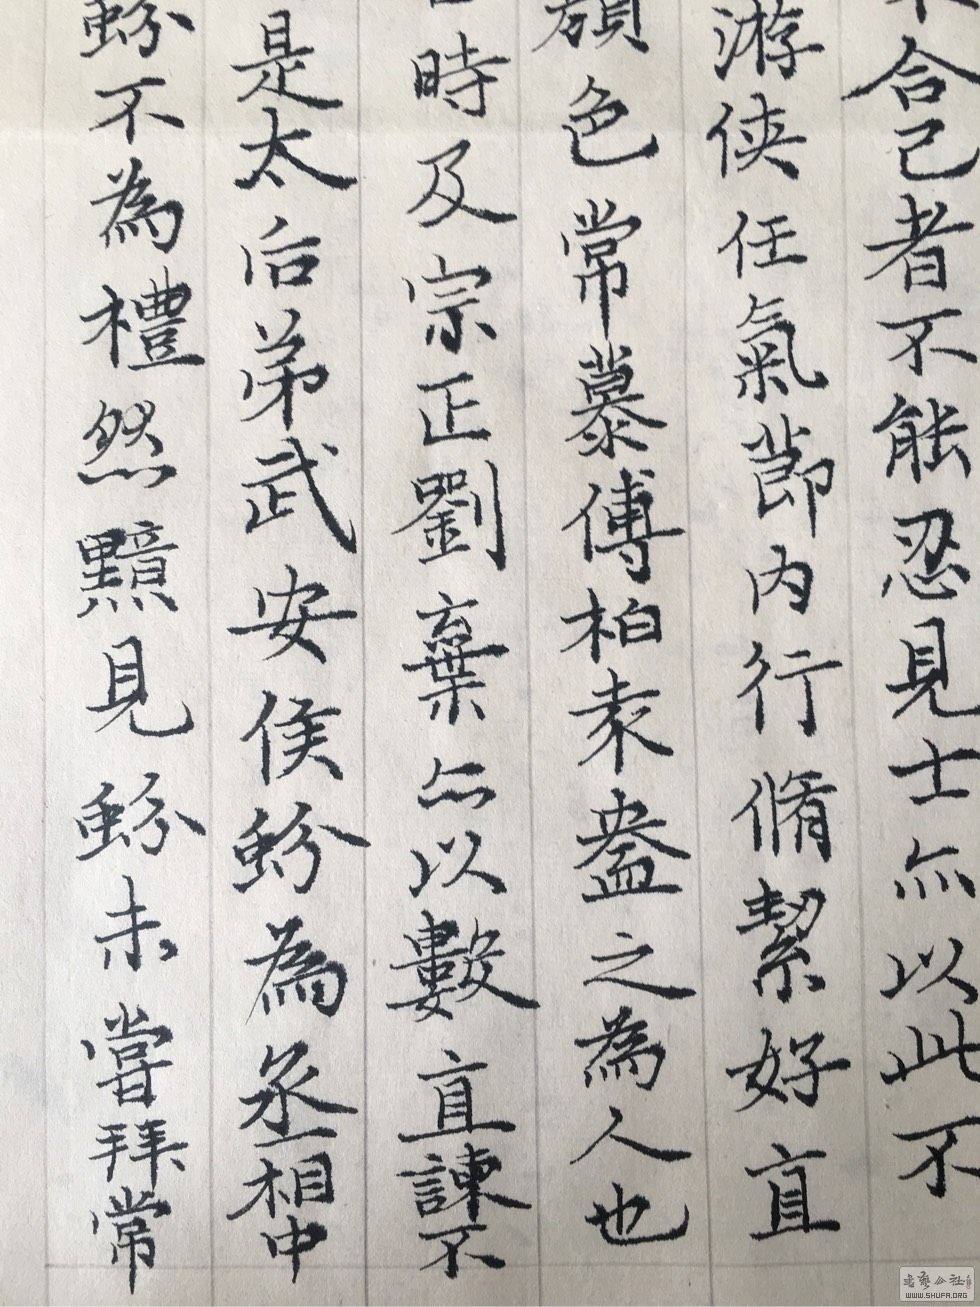 合己者不能忍見士亦以此不
游俠任氣節內行脩絜好直
顏色常慕傅柏袁盎之為人也
時及宗正劉棄亦以數直諫不
是太后弟武安侯蚡為丞相中
蚡不為禮然黯見蚡未嘗拜常
书艺公社
WWW.SHUFA.ORG